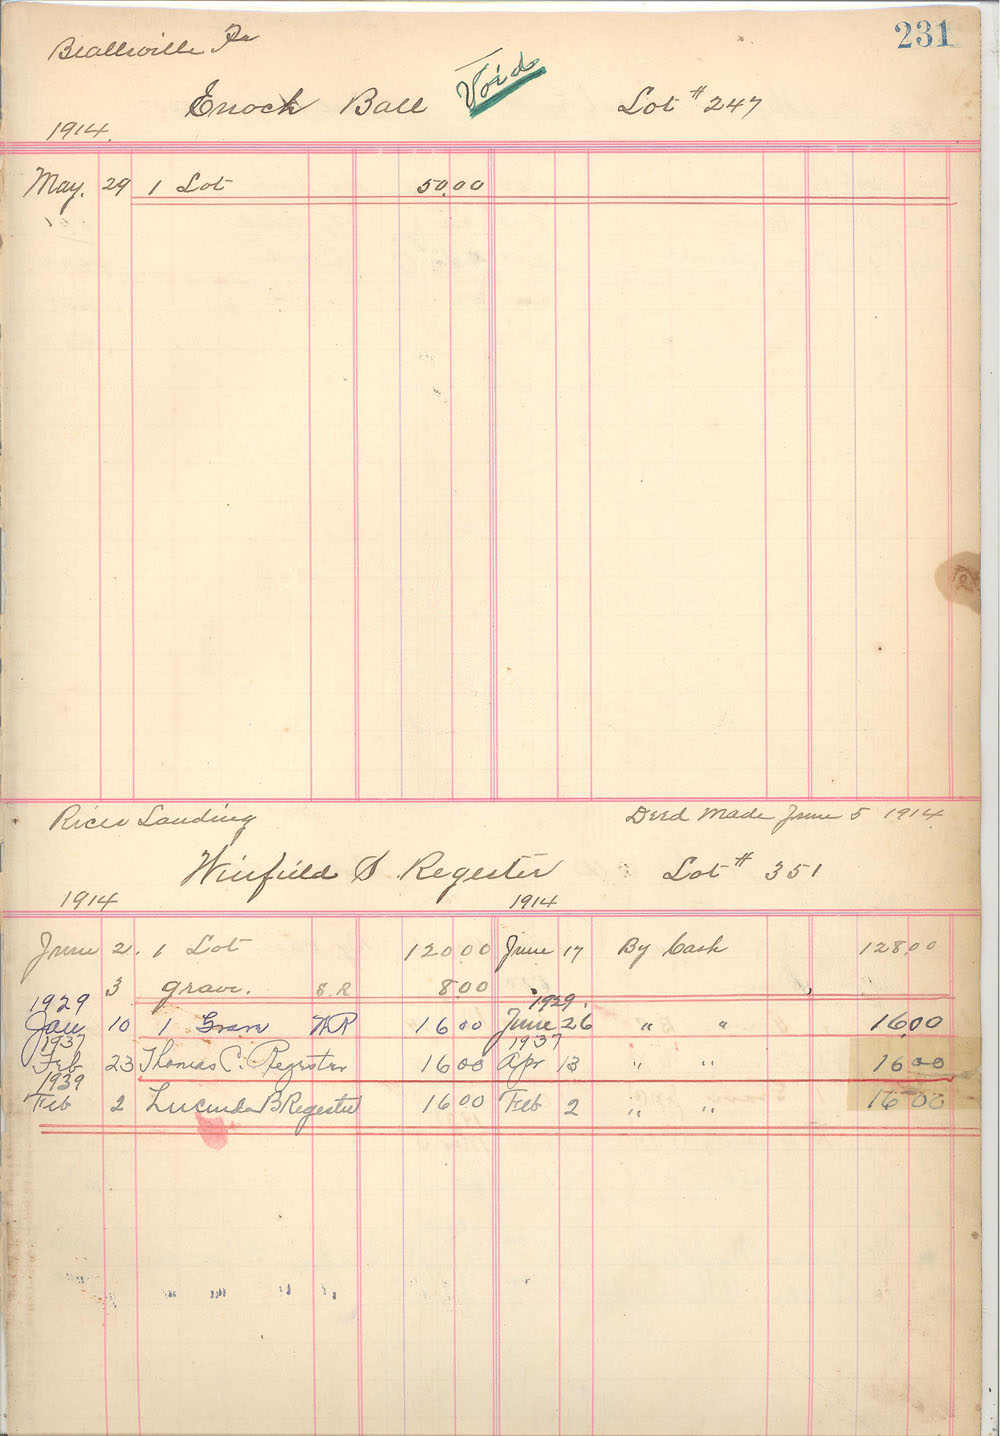 231
Beallsville Pa
Enock Ball Void Lot # 247
1914.
May. 29 1 Lot 50.00
Rices Landing Deed Made June 5 1914
Winfield S. Regester Lot # 351
1914 1914
June 2. 1 Lot 120 00 June 17 By Cash 128.00
3 grave. S. R 8 00
1929 1929.
Jan 10 1 Grave WR 16 00 June 26 " " 16.00
1937 1937
Feb 23 Thomas C. Regester 16 00 Apr 13 " " 16 00
1939
Feb 2 Lucinda B Regester 16 00 Feb 2 " " 16 00